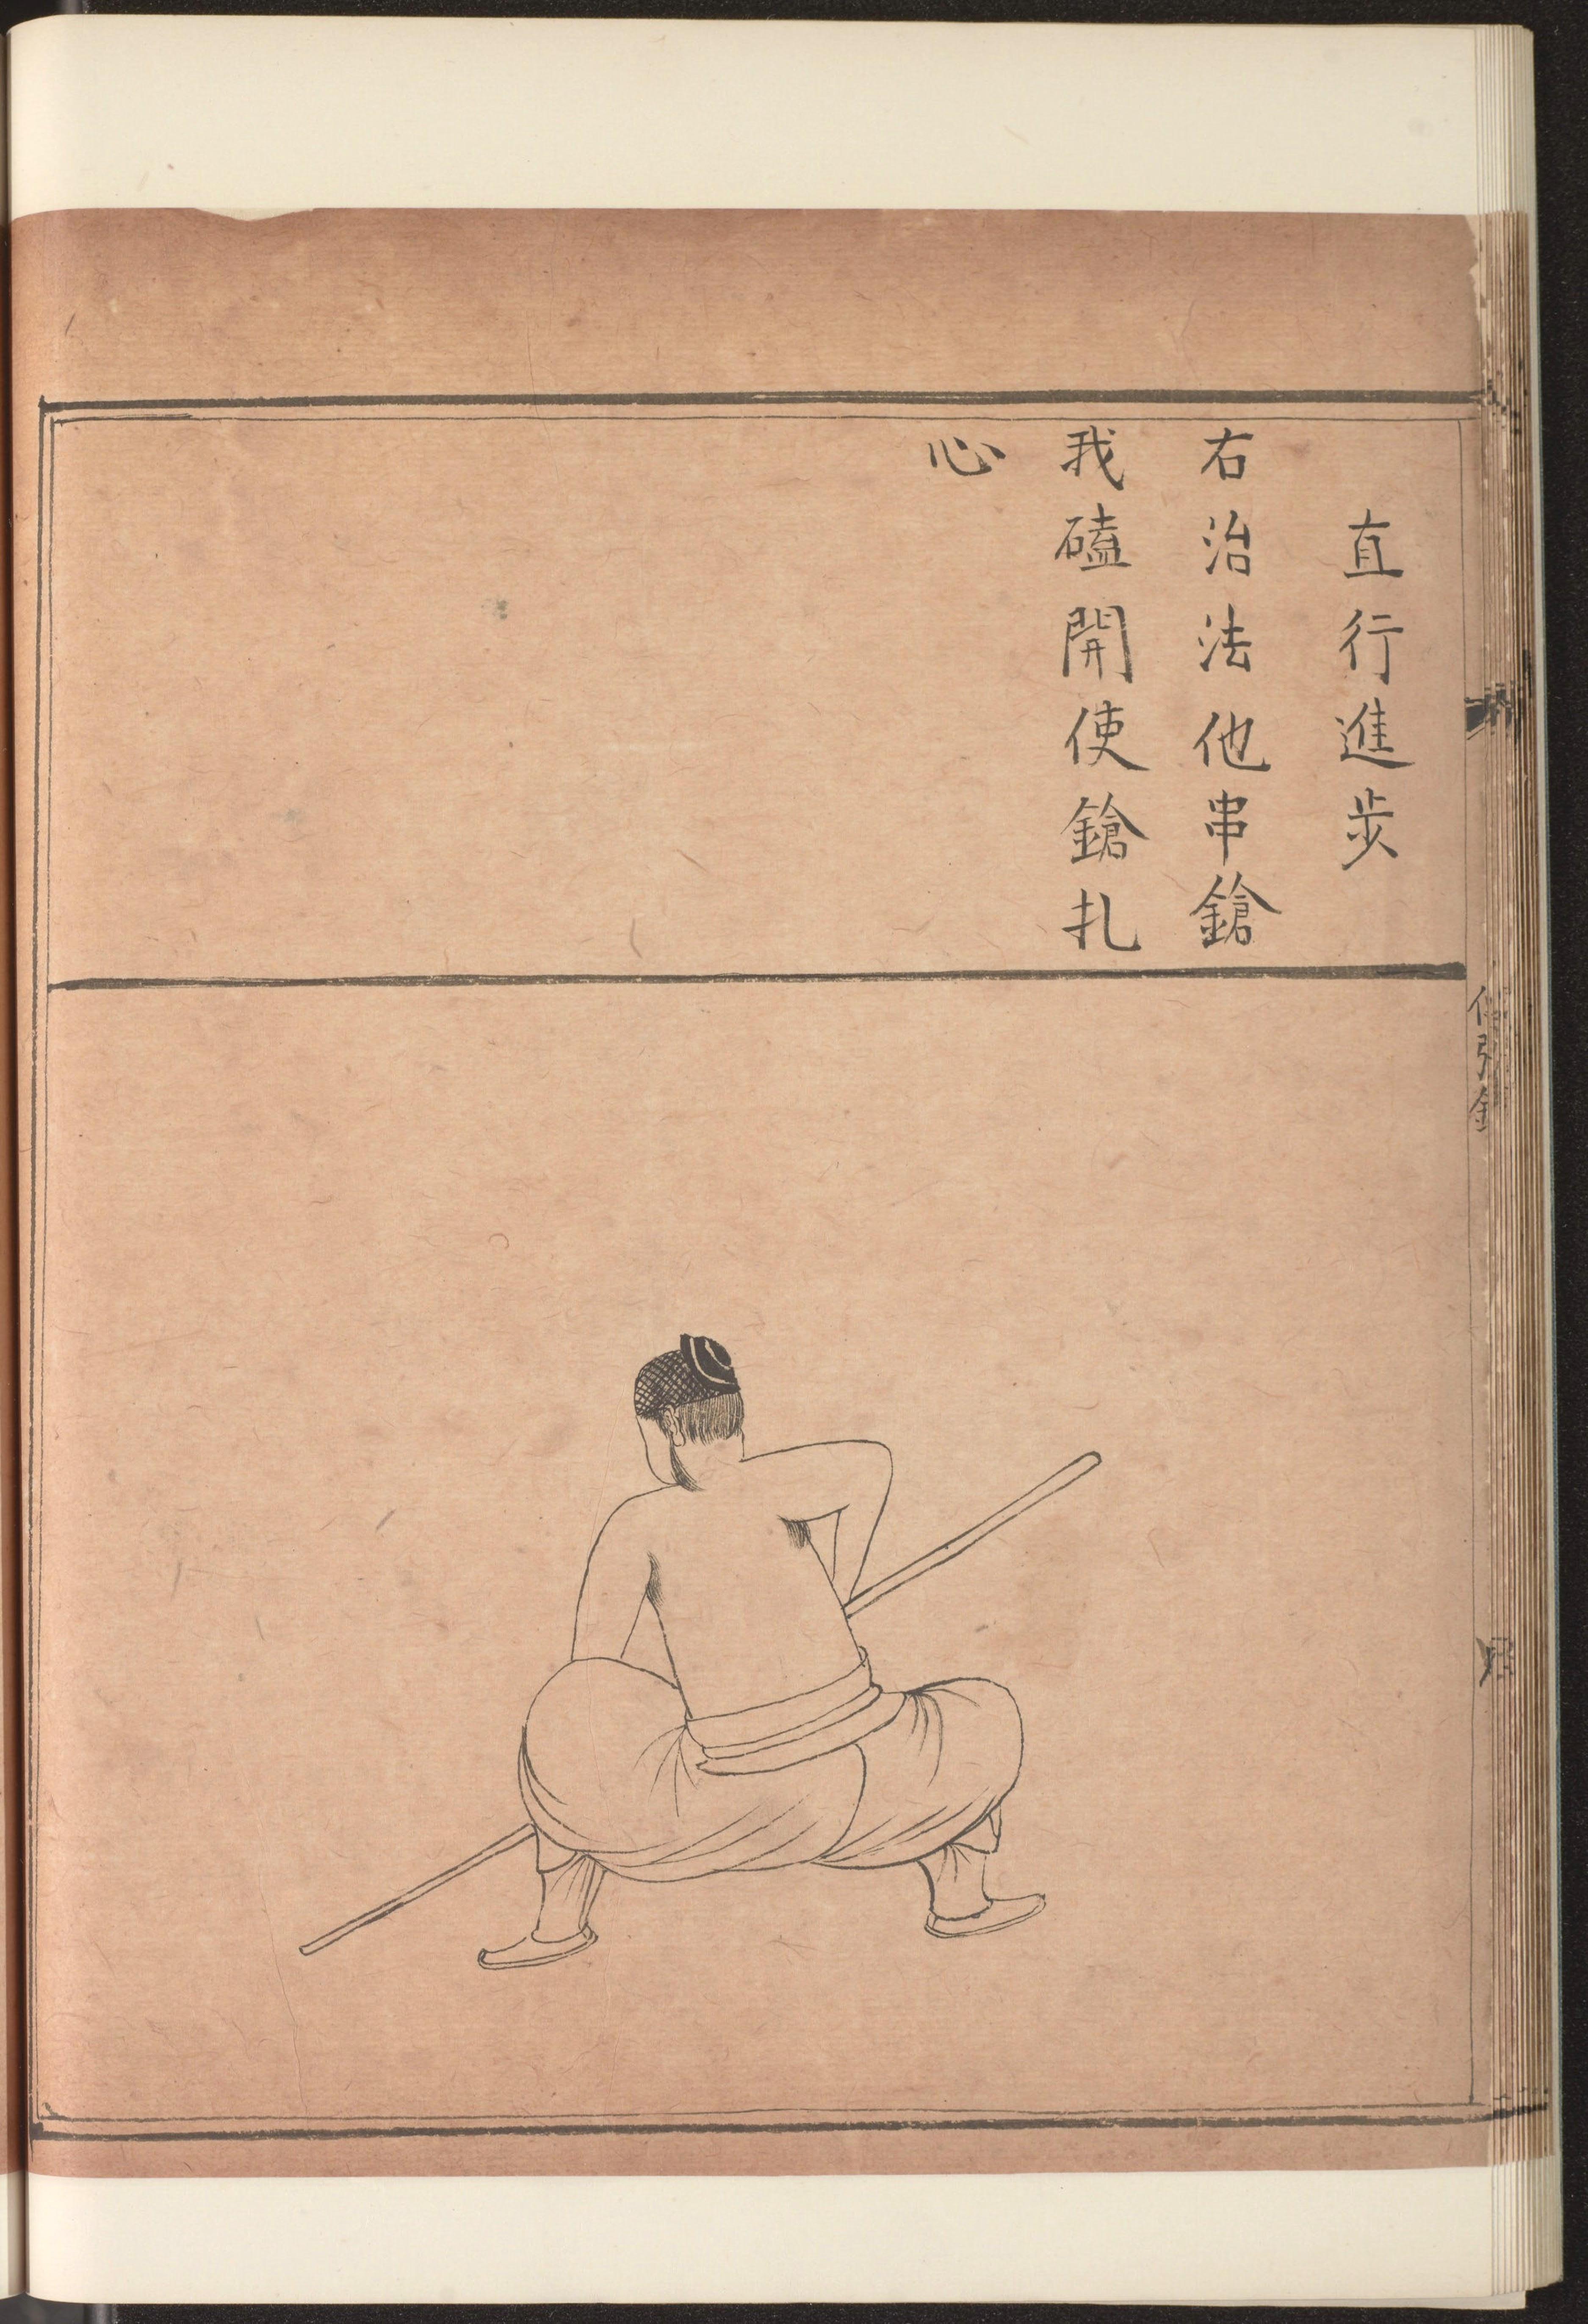 直行進步
右治法他串鎗
我磕開使鎗扎
心